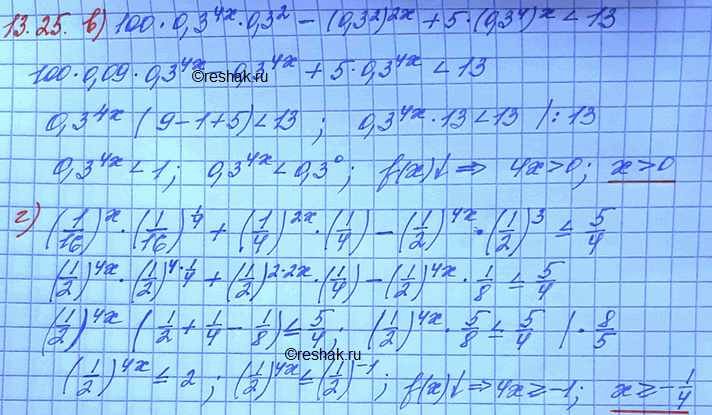 13.25. в) 100 · 0,3^(4x) · 0,3^2 − (0,3^2)^(2x) + 5 · (0,3^4)^x < 13
100 · 0,09 · 0,3^(4x) − 0,3^(4x) + 5 · 0,3^(4x) < 13
©reshak.ru
0,3^(4x) (9 − 1 + 5) < 13 ; 0,3^(4x) · 13 < 13 | : 13
0,3^(4x) < 1 ; 0,3^(4x) < 0,3^0 ; f(x)↓ ⇒ 4x > 0 ; x > 0
г) (1/16)^x · (1/16)^(1/4) + (1/4)^(2x) · (1/4) − (1/2)^(4x) · (1/2)^3 ≤ 5/4
(1/2)^(4x) · (1/2)^(4 · 1/4) + (1/2)^(2·2x) · (1/4) − (1/2)^(4x) · 1/8 ≤ 5/4
(1/2)^(4x) (1/2 + 1/4 − 1/8) ≤ 5/4 ; (1/2)^(4x) · 5/8 ≤ 5/4 | · 8/5
©reshak.ru
(1/2)^(4x) ≤ 2 ; (1/2)^(4x) ≤ (1/2)^(−1) ; f(x)↓ ⇒ 4x ≥ −1 ; x ≥ −1/4